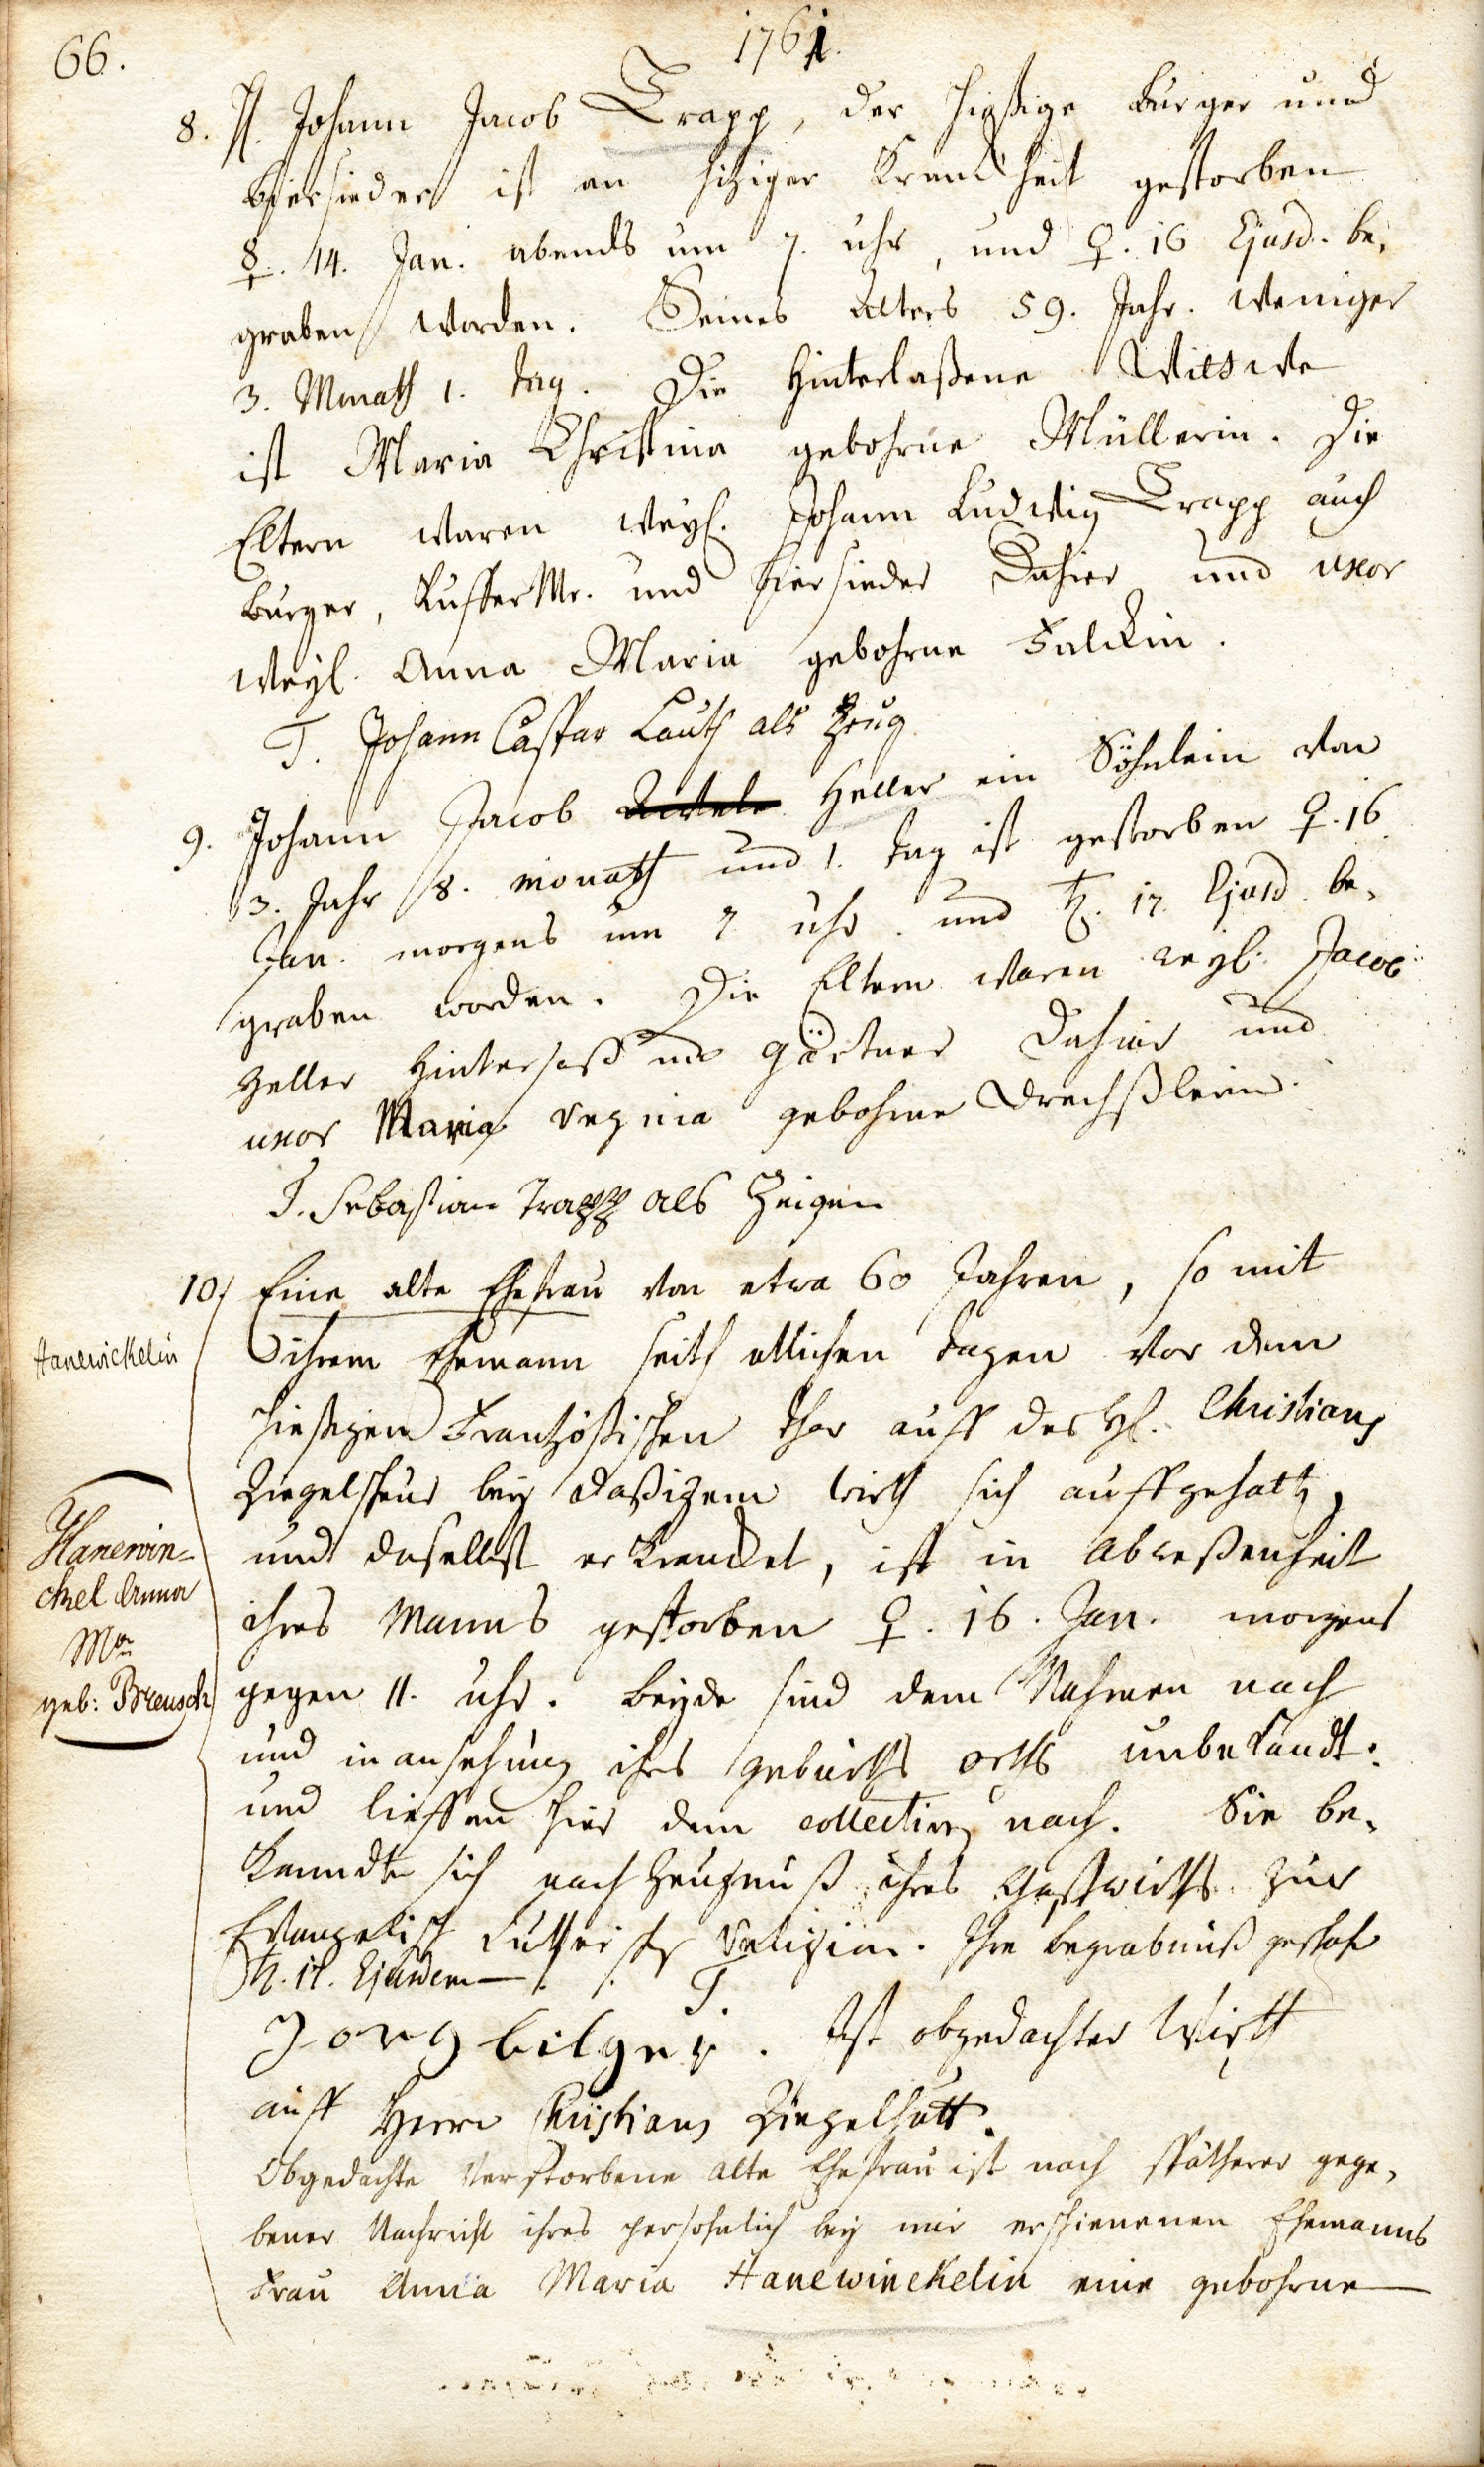 66.
1761.
8. H. Johann Jacob Trapp, der hießige burger und
biersieder ist an hitziger Kranckheit gestorben
☿. 14. Jan. abends um 7. uhr, und ♀. 16 Ejusd. be-
graben worden. Seines Alters 59. Jahr. weniger
3. Monath 1. tag. Die hinterlaßene Wittwe
ist Maria Christina gebohrne Müllerin. Die
Eltern waren weyl. Johann Ludwig Trapp auch
burger, Kuffer Mr. und biersieder dahier und uxor
weyl. Anna Maria gebohrne Falckin.
T. Johann Caspar Lauth als Zeug
9. Johann Jacob Heller ein Söhnlein von
3. Jahr 8. monath und 1. tag ist gestorben ♀. 16
Jan. morgens um 7 uhr. und ♄. 17. Ejusd. be-
graben worden. Die Eltern waren weyl. Jacob
Heller Hintersaß und gärtner dahier und
uxor Maria Regina gebohrne Drechßlerin.
T. Sebastian Trapp als Zeigen
10. Eine alte Ehefrau von etwa 60 Jahren, so mit
ihrem Ehemann seith etlichen tagen vor dem
hießigen Frantzößischen thor auff des H. Christians
Ziegelscheur bey daßigem wirth sich auffgehalten,
und daselbst erkrancket, ist in abweßenheit
ihres Manns gestorben ♀. 16. Jan. morgens
gegen 11. uhr. beyde sind dem Nahmen nach
und in ansehung ihres geburths orths unbekandt.
und lieffen hier dem collectiren nach. Sie be-
kanndte sich nach Zeugnuß ihres Gastwirths zur
Evangelisch Lutherischen Religion. Ihre begrabnuß geschah
♄. 17. Ejusdem
T.
Jorg bilger. Ist obgedachter Wirth
auff Herrn Christians Ziegelhütt.
Obgedachte verstorbene alte Ehefrau ist nach spätherer gege-
bener Nachricht ihres persohnlich bey mir erschienenen Ehemanns
Frau Anna Maria Hanewinckelin eine gebohrne
Hanewickelin
Hanewin-
ckel Anna
Ma
geb: Breusch